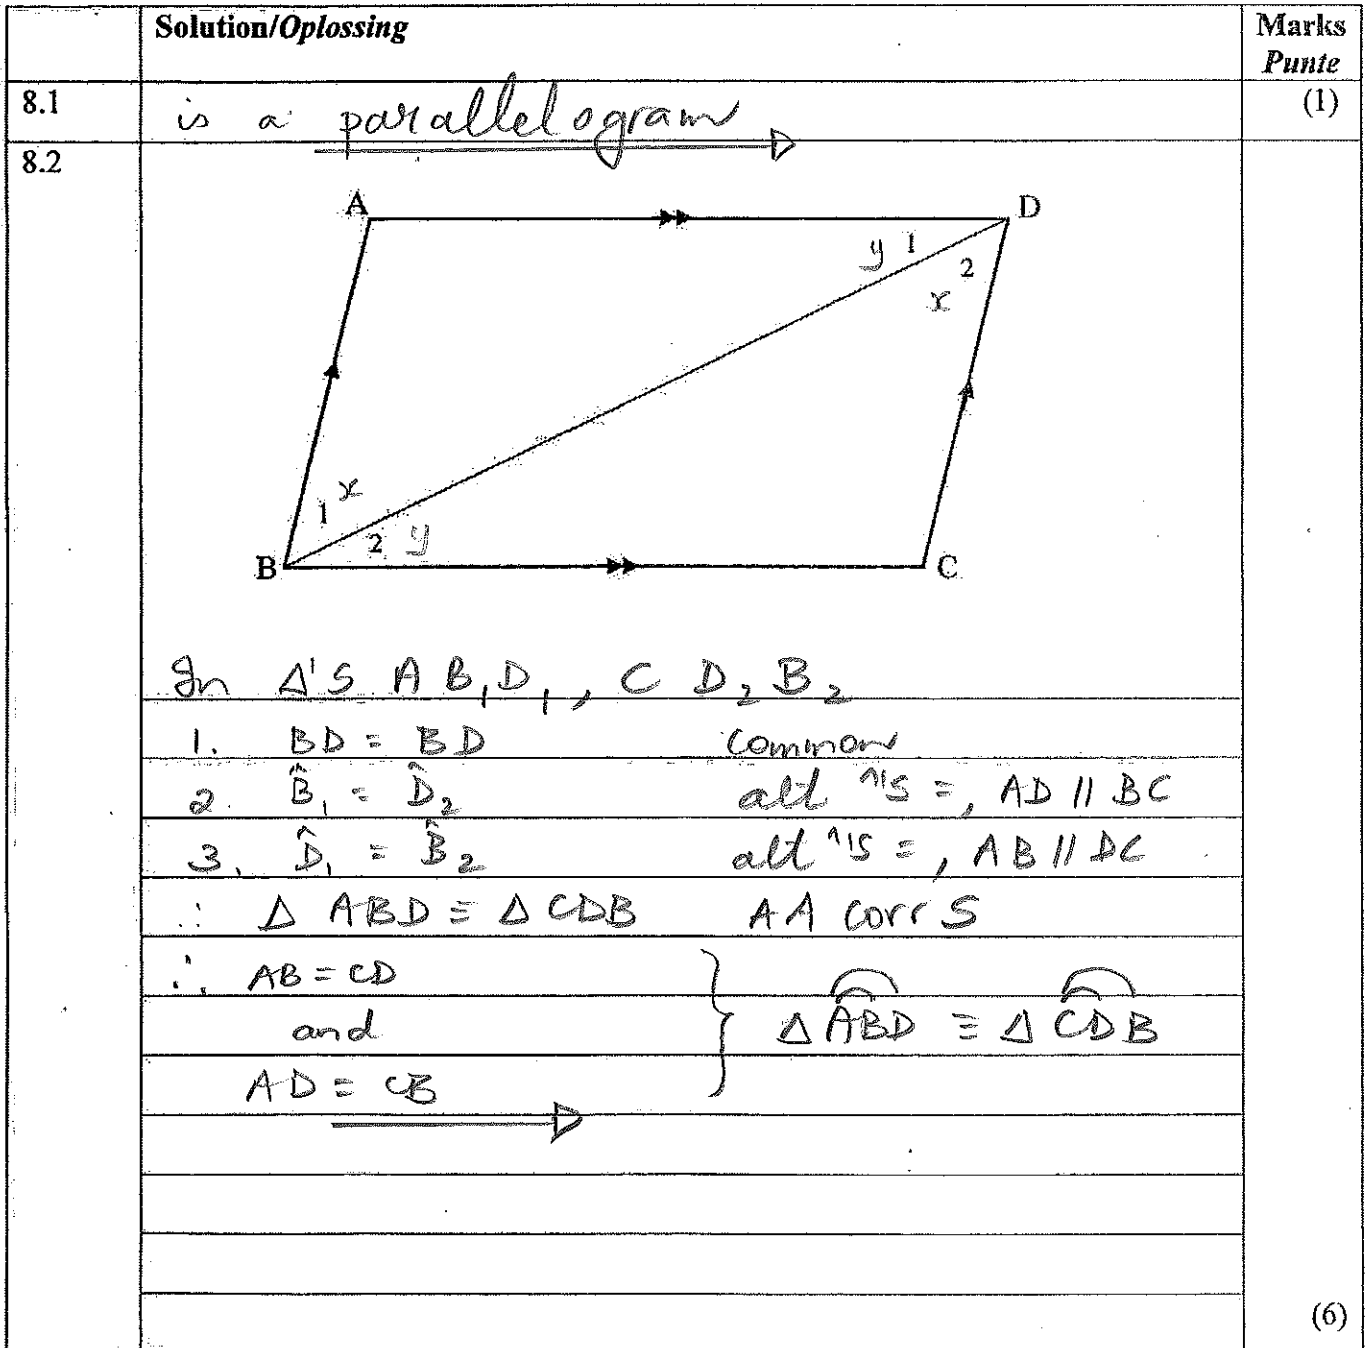 Solution/Oplossing
Marks
Punte
8.1
is a parallelogram
(1)
8.2
A
D
y 1
2
x
1 x
2 y
B
C
In Δ'S A B₁D₁, C D₂ B₂
1. BD = BD common
2. B̂₁ = D̂₂ alt ^'s =, AD // BC
3. D̂₁ = B̂₂ alt ^'s =, AB // DC
∴ Δ ABD ≡ Δ CDB AA corr S
∴ AB = CD
and Δ ABD ≡ Δ CDB
AD = CB
(6)